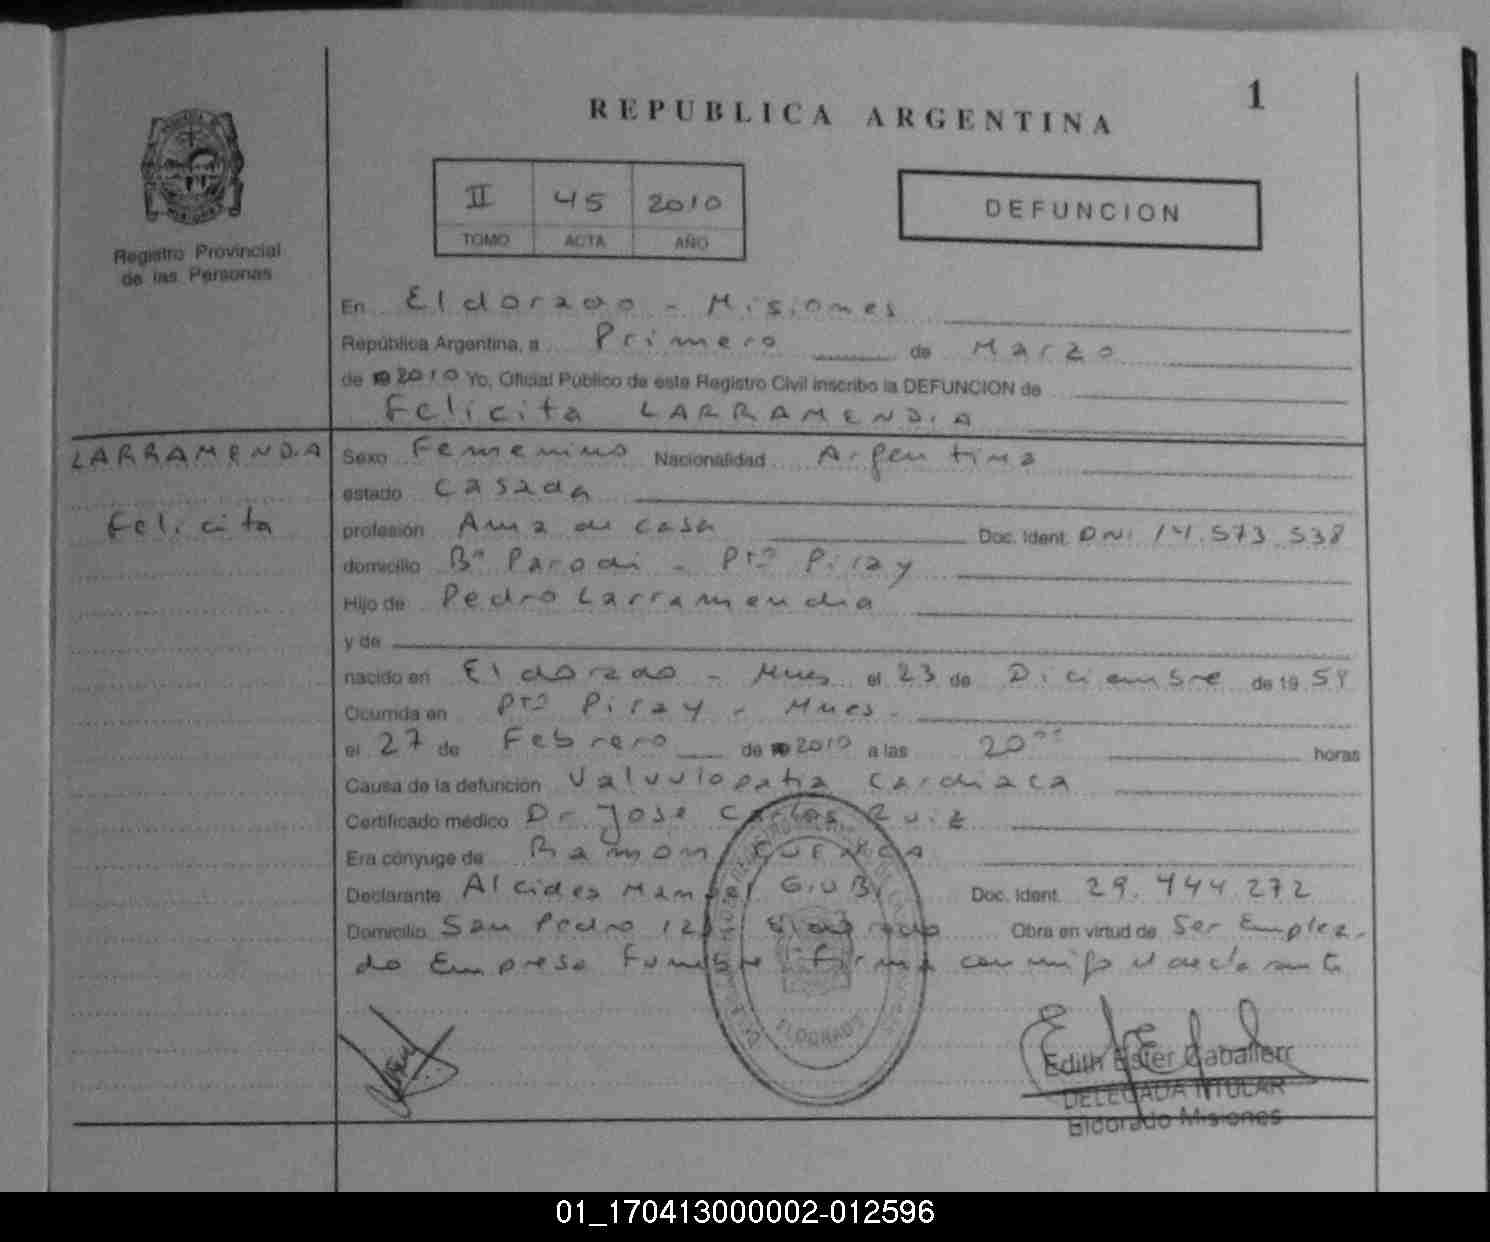 1
REPUBLICA ARGENTINA
II 45 2010
TOMO ACTA AÑO
DEFUNCION
Registro Provincial
de las Personas
En Eldorado - Misiones
República Argentina, a Primero de Marzo
de 2010 Yo, Oficial Público de este Registro Civil inscribo la DEFUNCION de
Felicita LARRAMENDIA
LARRAMENDIA
Felicita
Sexo Femenino Nacionalidad Argentina
estado Casada
profesión Ama de casa Doc. Ident. DNI 14.573.538
domicilio Bº Parodi - Ptº Piray
Hijo de Pedro Larramendia
y de
nacido en Eldorado - Mnes el 23 de Diciembre de 19
Ocurrida en Ptº Piray - Mnes.
el 27 de Febrero de 2010 a las 20 horas
Causa de la defunción Valvulopatia Cardiaca
Certificado médico Dr Jose Carlos Ruiz
Era cónyuge de Ramon
Declarante Alcides Manuel Doc. Ident. 29.444.272
Domicilio San Pedro Eldorado Obra en virtud de Ser Emplea-
do Empresa Funebre firma conmigo el declarante
ELDORADO
Edith Ester Caballero
DELEGADA TITULAR
Eldorado Misiones
01_170413000002-012596